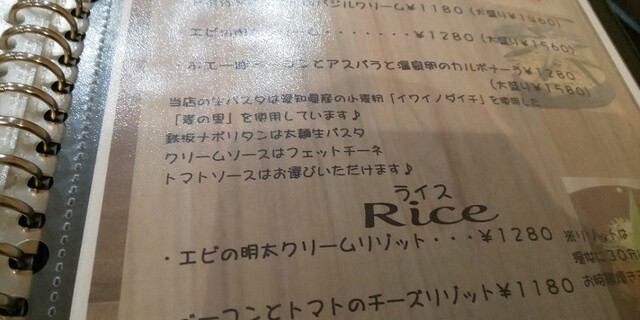 バジルクリーム¥1180 (大盛り¥1460)
・エビ ・・・・・・・¥1280 (大盛り¥1560)
ンとアスパラと温泉卵のカルボナーラ¥1280
(大盛り¥1580)
当店の生パスタは愛知県産の小麦粉「イワイノダイチ」を使用した
「麦の里」を使用しています♪
鉄板ナポリタンは太麺生パスタ
クリームソースはフェットチーネ
トマトソースはお選びいただけます♪
ライス
Rice
・エビの明太クリームリゾット・・・¥1280 ※リゾットは
30分
ベーコンとトマトのチーズリゾット¥1180 お時間